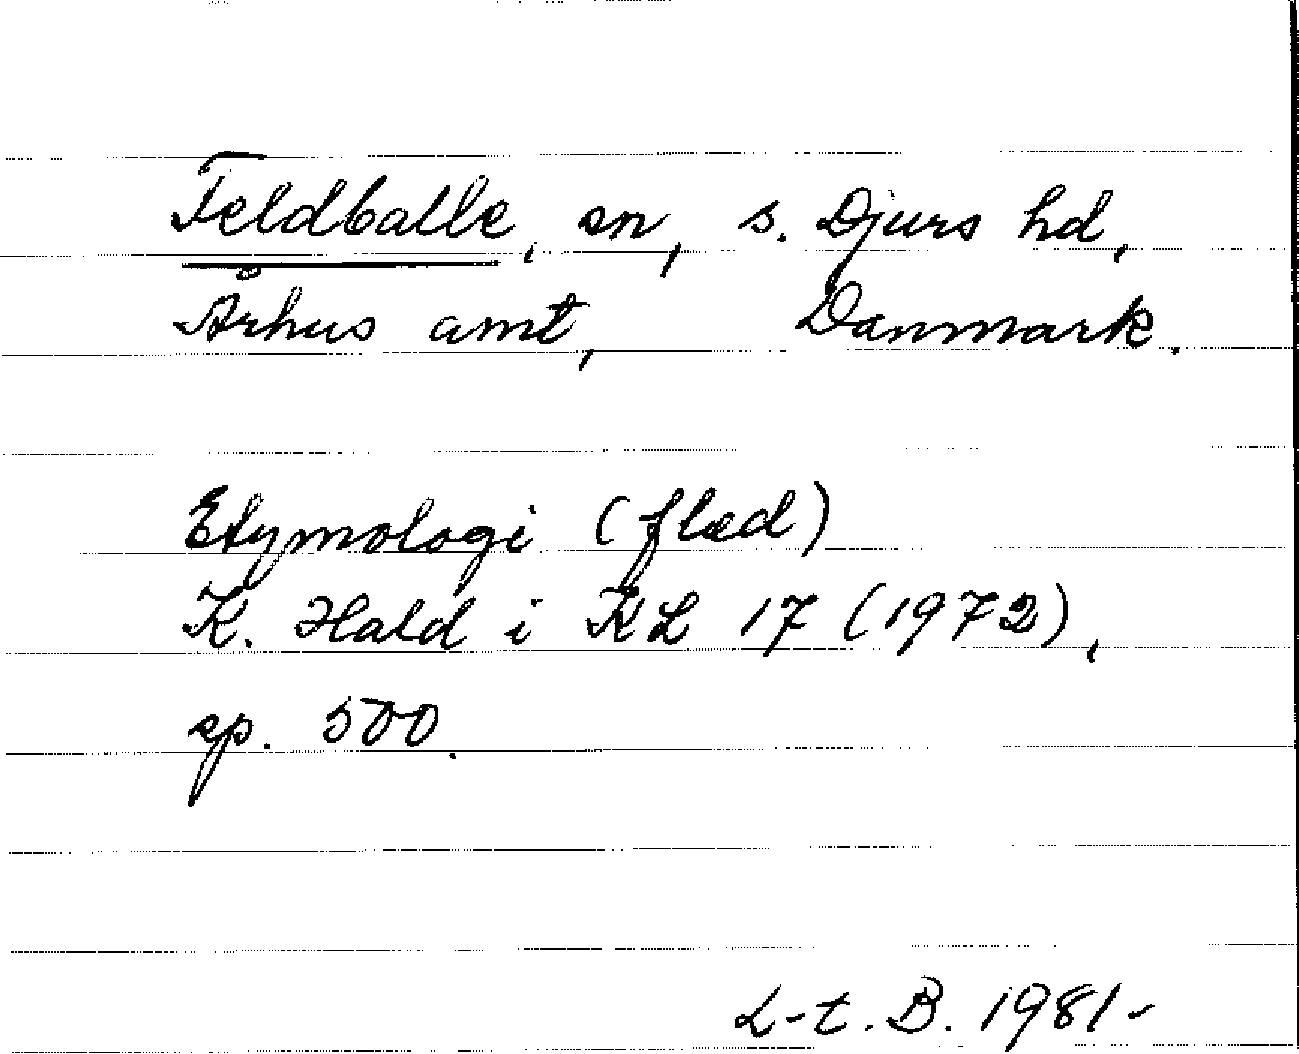 Feldballe, sn, s. Djurs hd,
Århus amt, Danmark.
Etymologi (flæd)
K. Hald i KL 17 (1972),
sp. 500.
L-t. B. 1981-